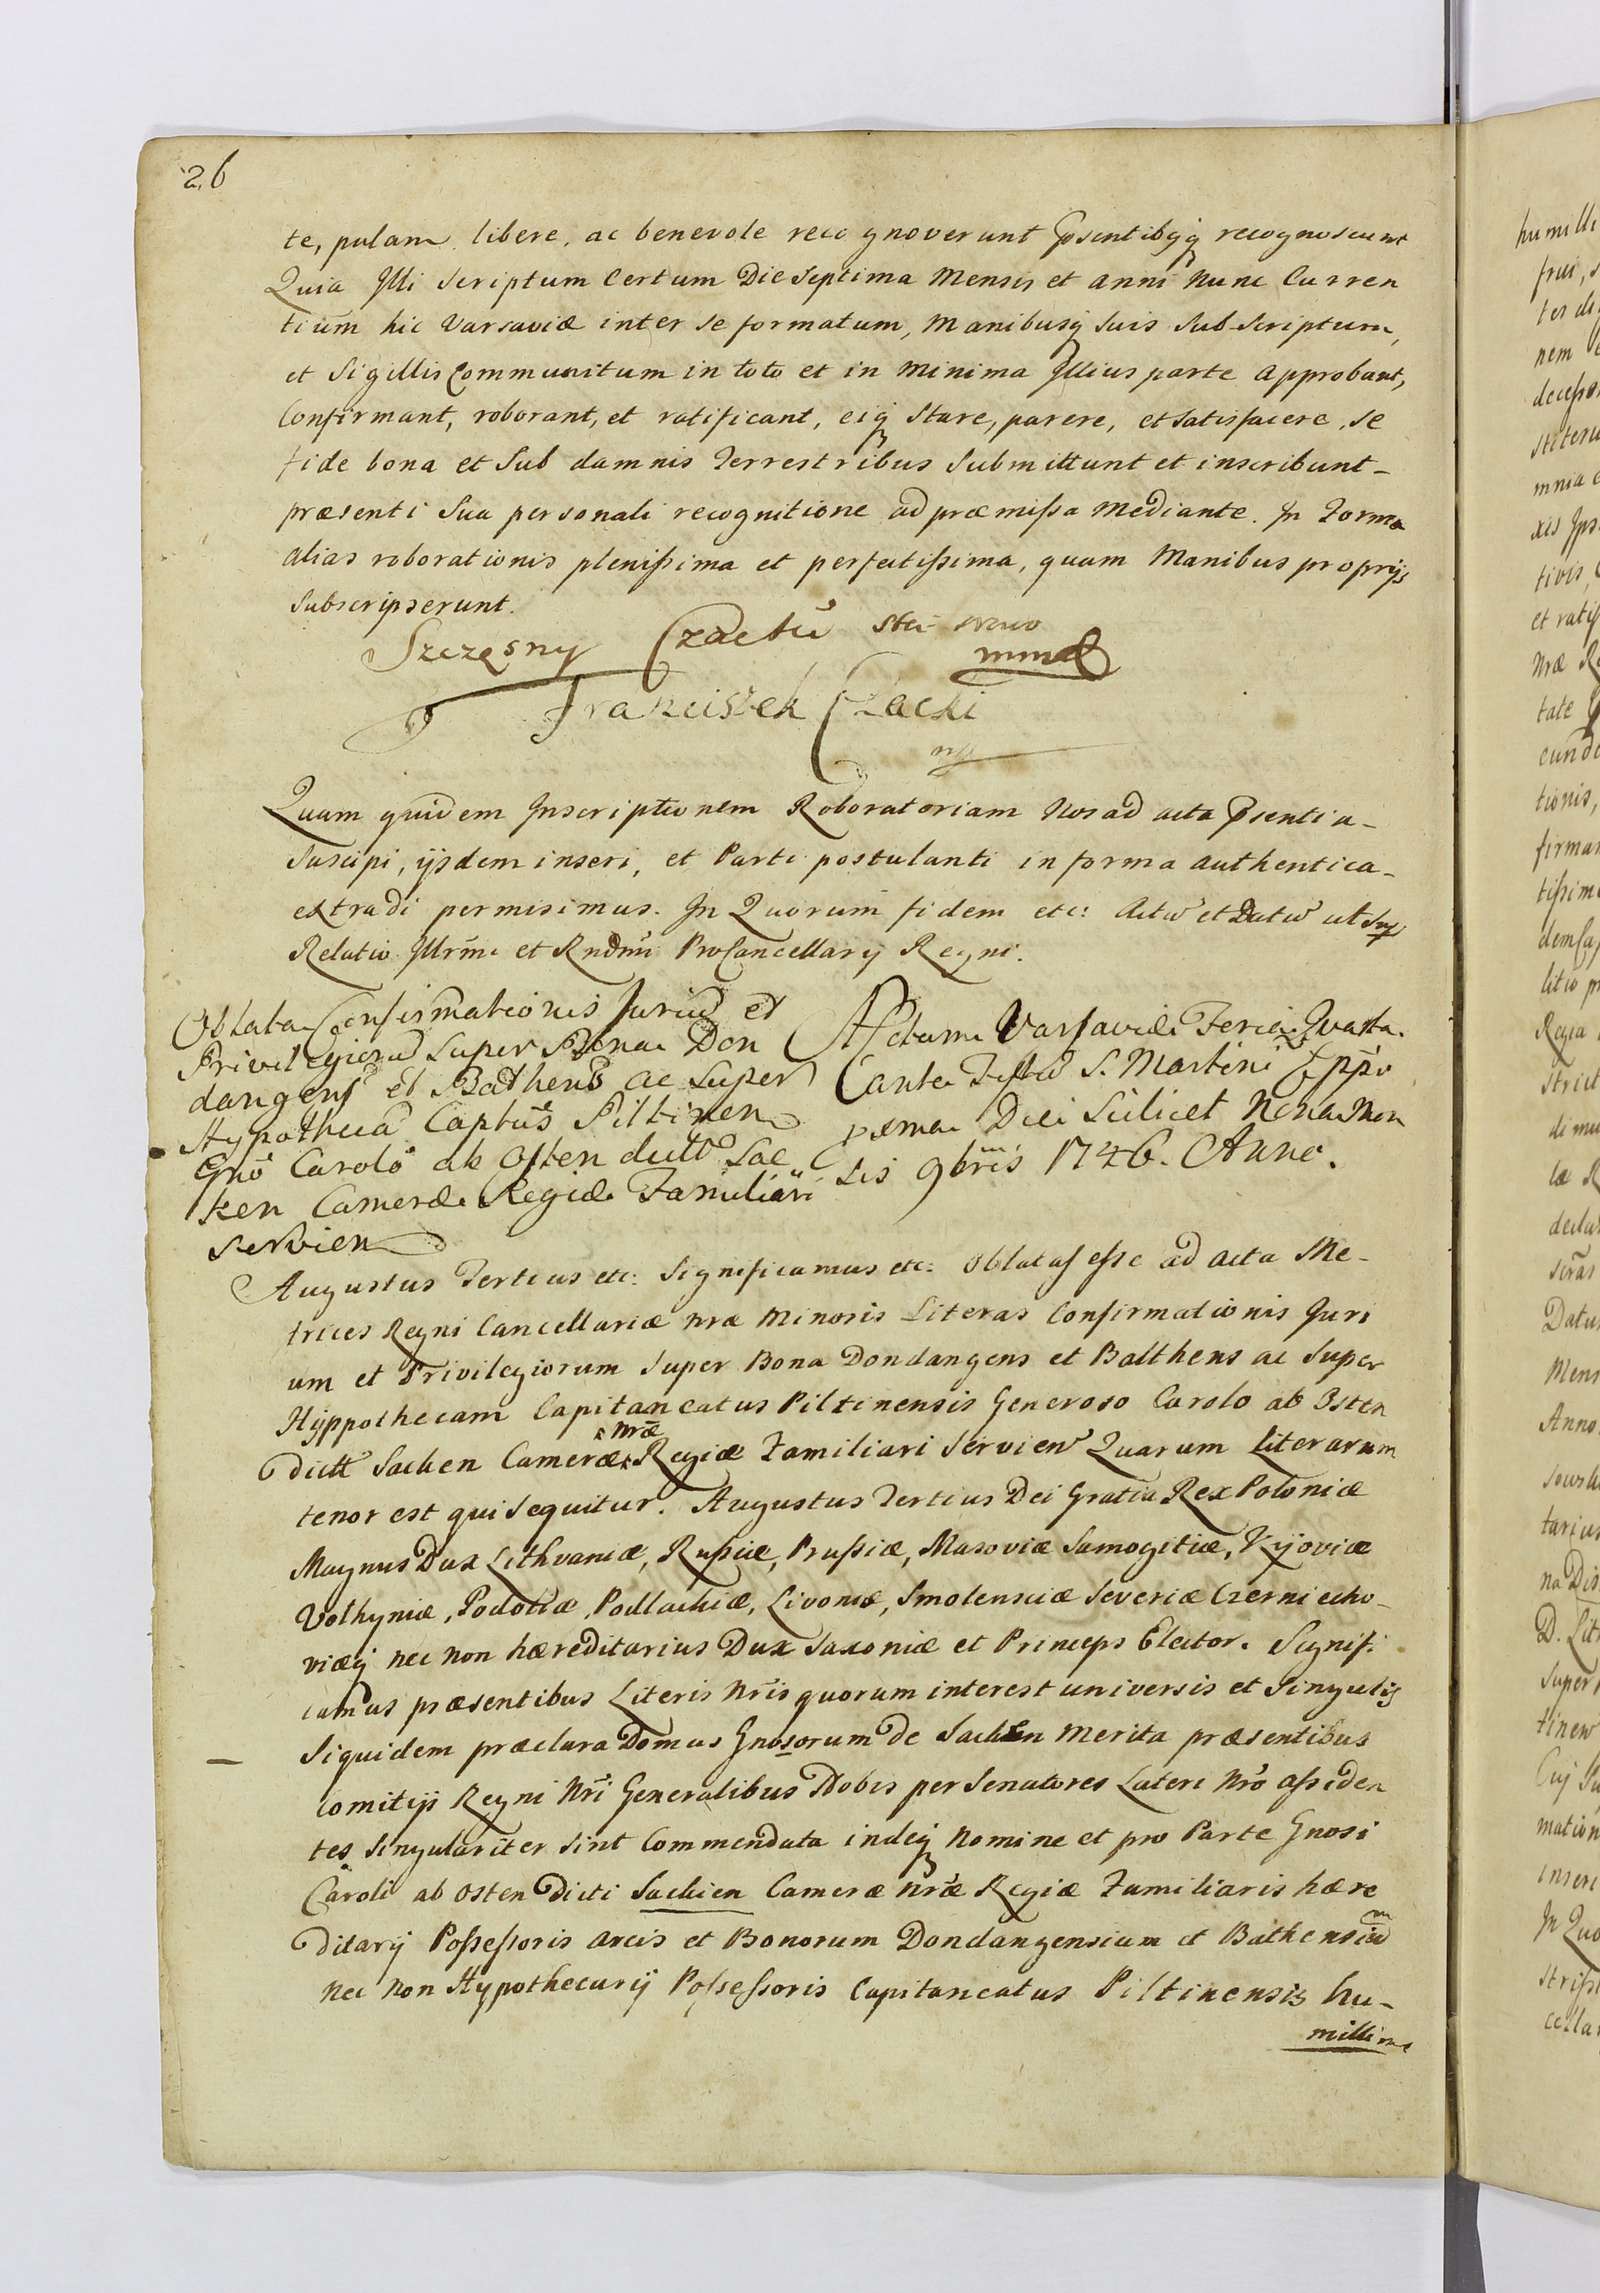 26
te, palam libere, ac benevole recognoverunt Psentibqq recognoscunt
Quia Illi Scriptum Certum Die Septima Mensis et anni Nunc Curren
tium hic Varsaviæ inter se formatum, Manibusq Suis Sub-Scriptum,
et Sigillis Communitum in toto et in Minima Illius parte Approbant,
Confirmant, roborant, et ratificant, eiq Stare, parere, et Satisfacere, Se
fide bona et Sub damnis Terrestribus Submittunt et inscribunt-
præsenti Sua personali recognitione ad præmissa Mediante. In Forma
alias roborationis plenissima et perfectissima, quam Manibus proprijs
Subscripserunt.
Szczęsny Czacki
mmp
Franciszek Czacki
mp
Quam quidem Inscriptionem Roboratoriam Nos ad acta Psentia-
Suscipi, ijsdem inseri, et Parti postulanti in forma authentica-
extradi permisimus. In Quorum fidem etc: Actū et Datū ut Sup
Relatio Illrmi et Rndmi ProCancellarij Regni.
Oblata Confirmationis Juriū et
Privilegiorū Super Bona Don
dangens et Bathens ac Super
Hypothecā Captūs Piltinen
Gnō Carolō ab Osten dictō Sac
ken Cameræ Regiæ Familiari
Servien
Actum Varsaviæ Feria Quarta
ante Festū S. Martini Eppi
xema Diei Scilicet Nona Men
sis 9bris 1746. Anno.
Augustus Tertius etc: Significamus etc: Oblatas esse ad acta Me-
trices Regni Cancellariæ nræ Minoris Literas Confirmationis Juri
um et Privilegiorum Super Bona Dondangens et Balthens ac Super
Hyppothecam Capitaneatus Piltinensis Generoso Carolo ab Osten
nræ
dictō Sacken Cameræ Regiæ Familiari Servien Quarum Literarum
tenor est qui Sequitur. Augustus Tertius Dei Gratia Rex Poloniæ
Magnus Dux Lithvaniæ, Russiæ, Prussiæ, Masoviæ Samogitiæ, Kijoviæ
Volhyniæ, Podoliæ, Podlachiæ, Livoniæ, Smolensciæ Severiæ Czerniecho-
viæq nec non hæreditarius Dux Saxoniæ et Princeps Elector. Signifi
camus præsentibus Literis Nris quorum interest universis et Singulis
Siquidem præclara Domus Gnosorum de Sacken Merita præsentibus
Comitijs Regni Nri Generalibus Nobis per Senatores Lateri Nro assiden
tes Singulariter Sint Commendata indeq Nomine et pro Parte Gnosi
Caroli ab Osten Dicti Sacken Cameræ nræ Regiæ Familiaris hære
ditarij Possessoris arcis et Bonorum Dondangensium et Bathensiū
nec non Hypothecarij Possessoris Capitaneatus Piltinensis hu-
millime